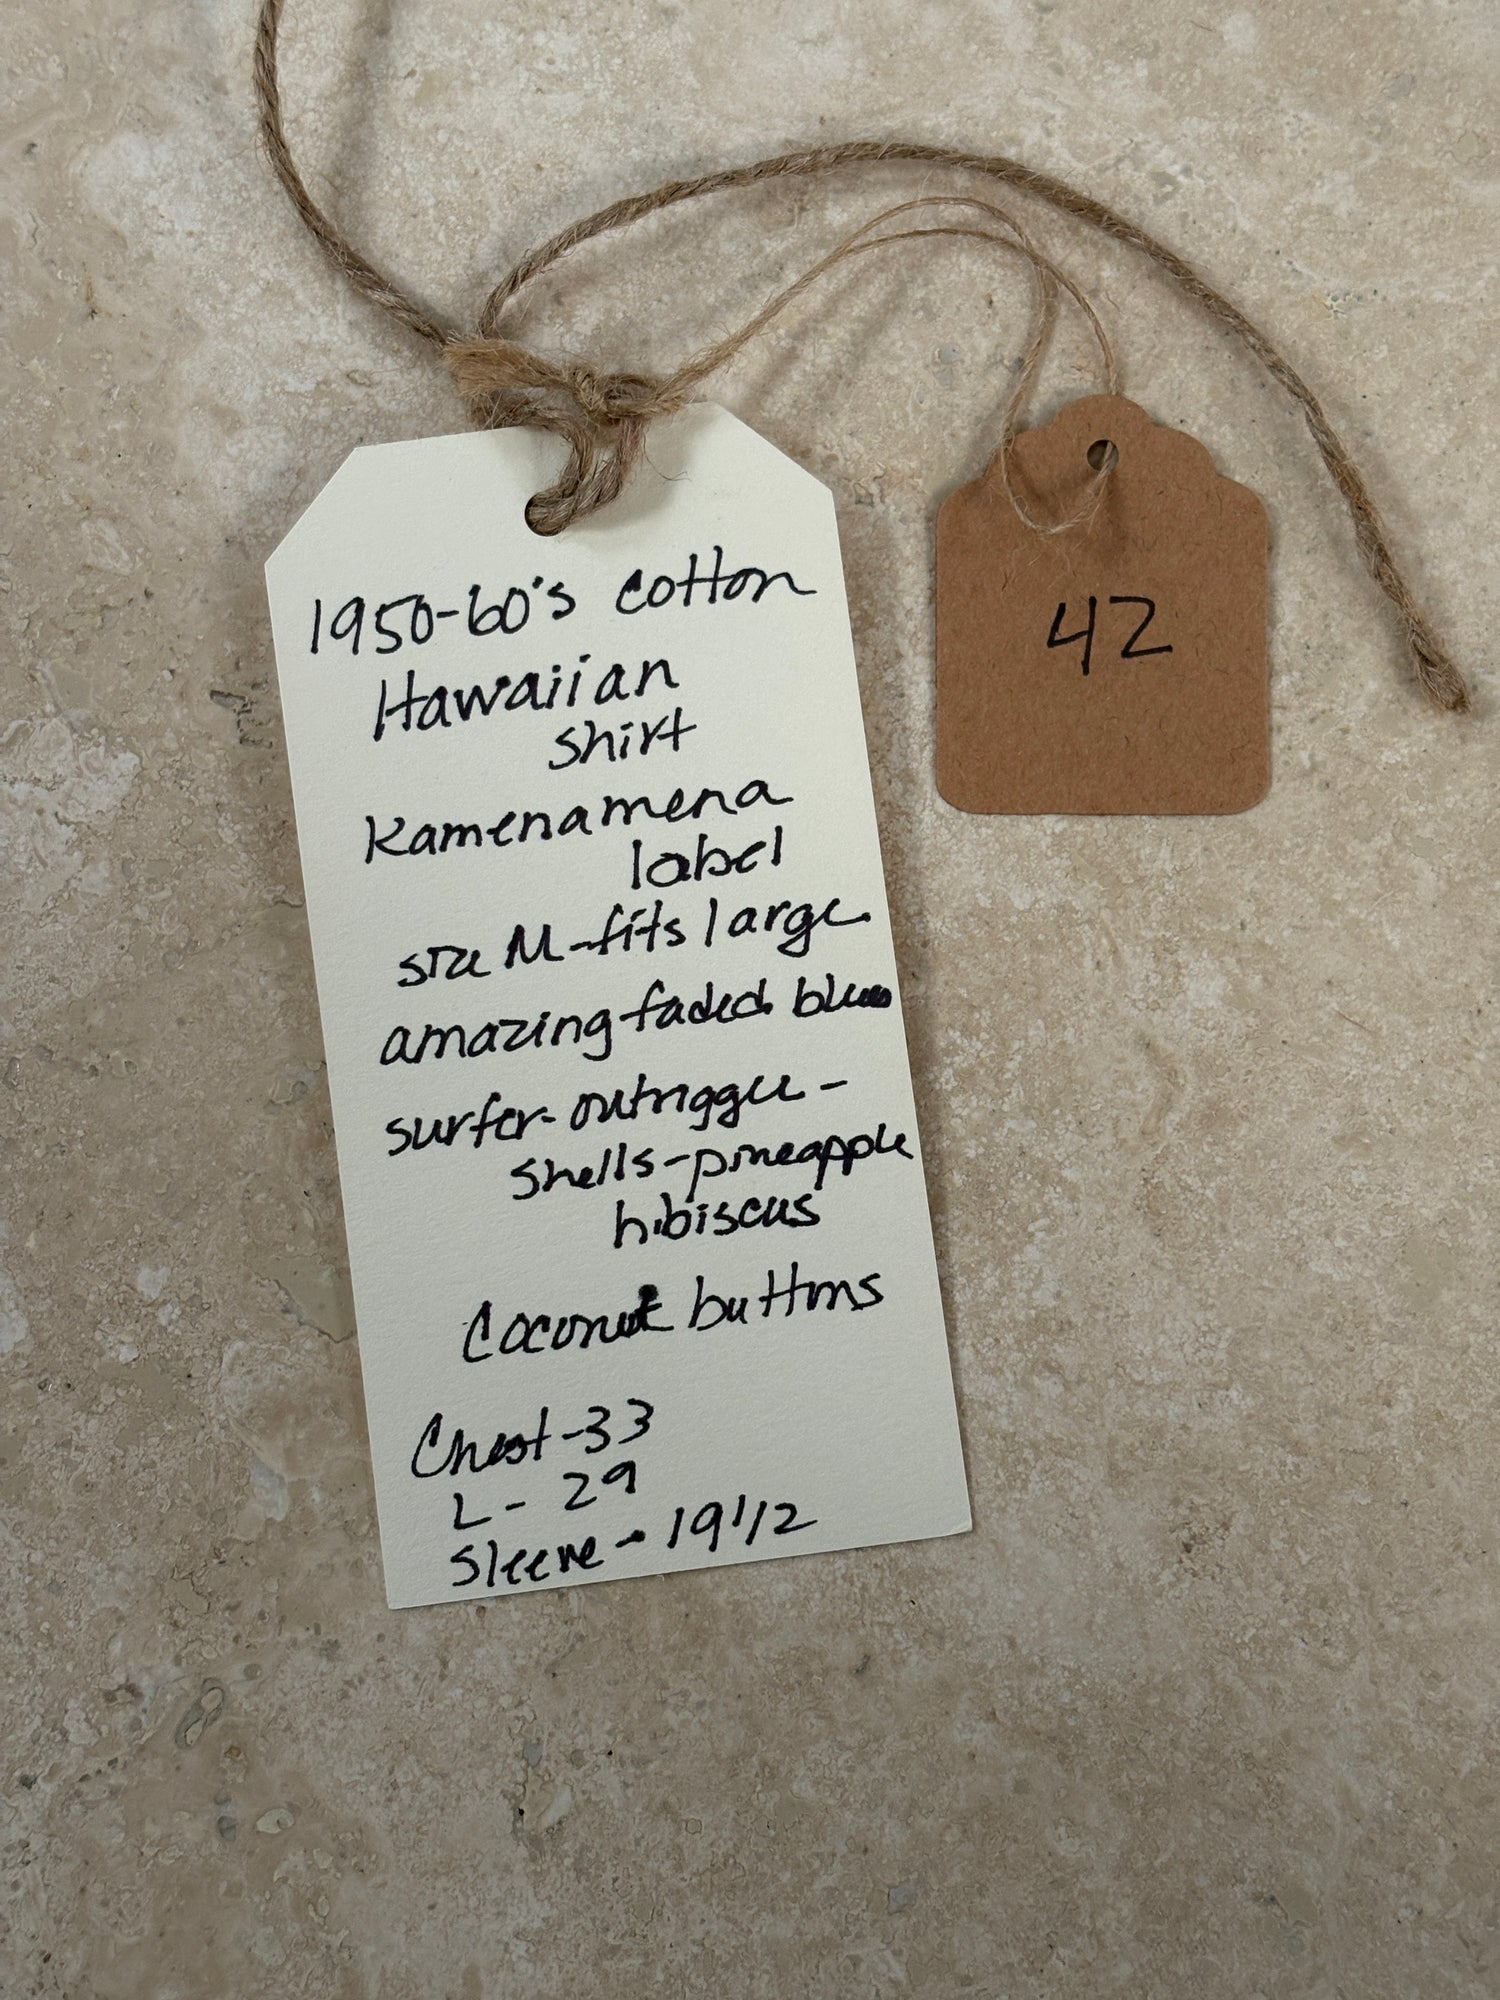 1950-60's cotton
Hawaiian
shirt
Kamenamena
label
size M-fits large
amazing faded blues
surfer- outrigger -
shells-pineapple
hibiscus
Coconut buttons
Chest-33
L- 29
Sleeve - 19 1/2
42